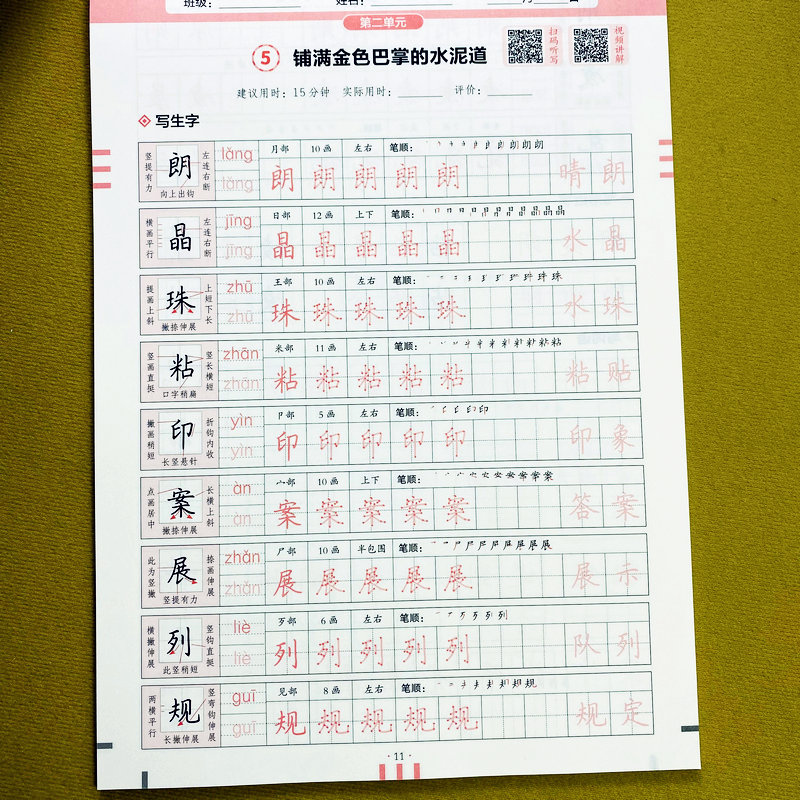 班级：
姓名：
月 日
第二单元
5 铺满金色巴掌的水泥道
扫码听写
视频讲解
建议用时：15分钟 实际用时： 评价：
写生字
竖提有力 朗 左连右断 向上出钩 lǎng lǎng 月部 10画 左右 笔顺：
朗 朗 朗 朗 朗 晴朗
横画平行 晶 左连右断 jīng jīng 日部 12画 上下 笔顺：
晶 晶 晶 晶 晶 水晶
提画上斜 珠 上短下长 撇捺伸展 zhū zhū 王部 10画 左右 笔顺：
珠 珠 珠 珠 珠 水珠
竖画直挺 粘 竖长横短 口字稍扁 zhān zhān 米部 11画 左右 笔顺：
粘 粘 粘 粘 粘 粘贴
撇画稍短 印 折钩内收 长竖悬针 yìn yìn 卩部 5画 左右 笔顺：
印 印 印 印 印 印象
点画居中 案 长横上斜 撇捺伸展 àn àn 宀部 10画 上下 笔顺：
案 案 案 案 案 答案
此为竖撇 展 捺画伸展 竖提有力 zhǎn zhǎn 尸部 10画 半包围 笔顺：
展 展 展 展 展 展示
横撇伸展 列 竖钩直挺 此竖稍短 liè liè 歹部 6画 左右 笔顺：
列 列 列 列 列 队列
两横平行 规 竖弯钩伸展 长撇伸展 guī guī 见部 8画 左右 笔顺：
规 规 规 规 规 规定
· 11 ·